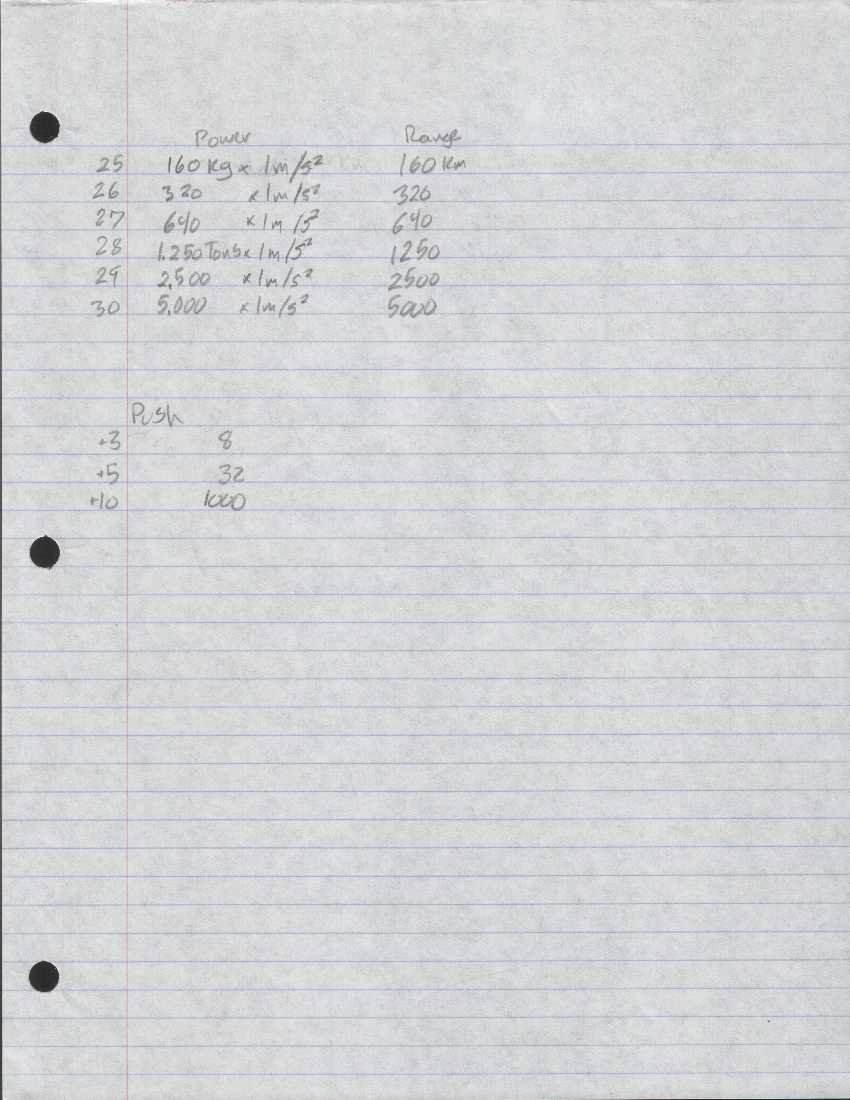 Power Range
25 160 Kg x 1m/s² 160 Km
26 320 x 1m/s² 320
27 640 x 1m/s² 640
28 1.250 Tons x 1m/s² 1250
29 2,500 x 1m/s² 2500
30 5,000 x 1m/s² 5000
Push
+3 8
+5 32
+10 1000